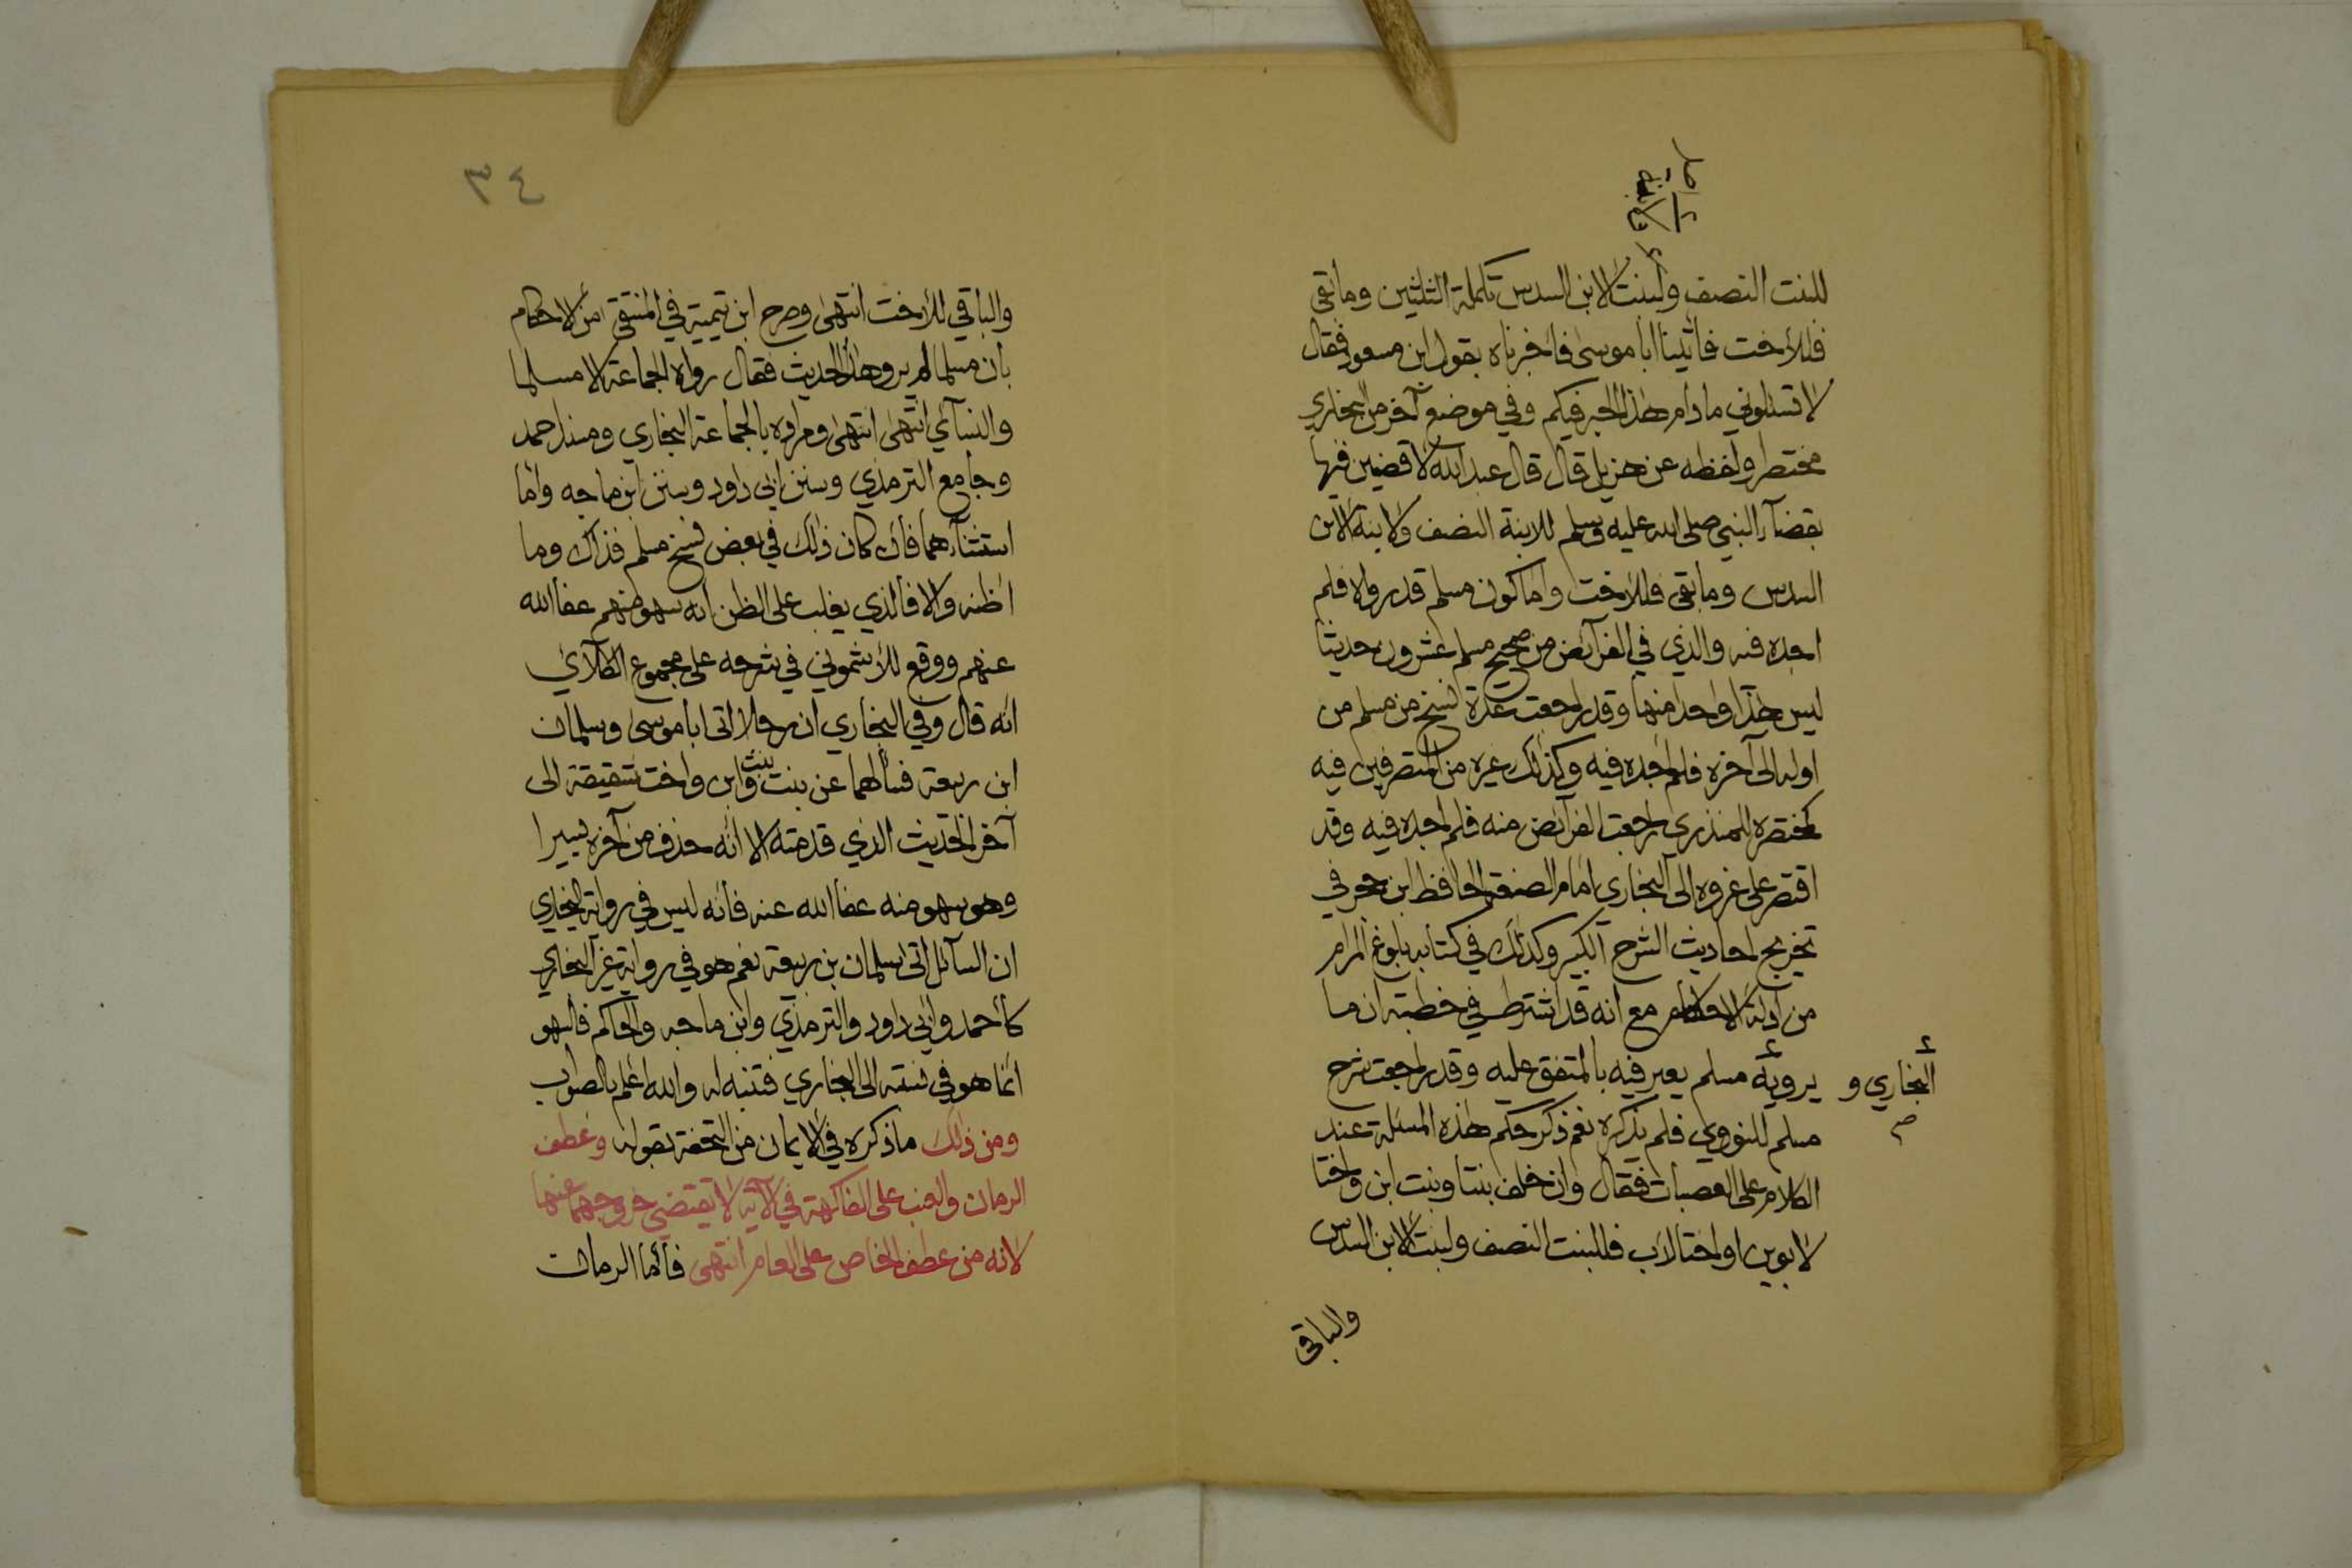 للبنت النصف ولبنت الابن السدس تكملة الثلثين وما بقي
فللأخت فأتينا أبا موسى فأخبرناه بقول ابن مسعود فقال
لا تسئلوني ما دام هذا الحبر فيكم وفي موضع آخر من البخاري
مختصرا ولفظه عن هزيل قال قال عبد الله لاقضين فيها
بقضاء النبي صلى الله عليه وسلم للابنة النصف ولابنة الابن
السدس وما بقي فللأخت وأما كون مسلم قد رواه فلم
اجده فيه والذي في الفرائض من صحيح مسلم عشرون حديثا
ليس هذا واحدا منها وقد راجعت عدة نسخ من مسلم من
اوله الى آخره فلم أجده فيه وكذلك غيره من المتصرفين فيه
كمختصره للمنذري راجعت الفرائض منه فلم أجده فيه وقد
اقتصر على عزوه الى البخاري امام الصنعة الحافظ ابن حجر في
تخريج احاديث الشرح الكبير وكذلك في كتابه بلوغ المرام
من ادلة الاحكام مع أنه قد اشترط في خطبته ان ما
يرويه مسلم يعبر فيه بالمتفق عليه وقد راجعت شرح
البخاري و
مسلم للنووي فلم يذكره نعم ذكر حكم هذه المسئلة عند
الكلام على العصبات فقال وان خلف بنتا وبنت ابن واختا
لأبوين او اختا لاب فللبنت النصف ولبنت الابن السدس
والباقي
٣٤
والباقي للأخت انتهى وصرح ابن تيمية في المنتقى من الاحكام
بأن مسلما لم يرو هذا الحديث فقال رواه الجماعة الا مسلما
والنسائي انتهى انتهى ومراده بالجماعة البخاري ومسند احمد
وجامع الترمذي وسنن ابي داود وسنن ابن ماجه وأما
استثناؤهما فان كان ذلك في بعض نسخ مسلم فذاك وما
اظنه والا فالذي يغلب على الظن أنه سهو منهم عفا الله
عنهم ووقع للأشموني في شرحه على مجموع الكلائي
أنه قال وفي البخاري ان رجلا اتى ابا موسى وسلمان
ابن ربيعة فسألهما عن بنت وبنت ابن واخت شقيقة الى
آخر الحديث الذي قدمته الا أنه حذف من آخره يسيرا
وهو سهو منه عفا الله عنه فأنه ليس في رواية البخاري
ان السائل اتى سلمان بن ربيعة نعم هو في رواية غير البخاري
كأحمد وابي داود والترمذي وابن ماجه والحاكم فالسهو
انما هو في نسبته الى البخاري فتنبه له والله اعلم بالصواب
ومن ذلك ما ذكره في الايمان من التحفة بقوله وعطف
الرمان والعنب على الفاكهة في الآية لا يقتضي خروجهما عنها
لانه من عطف الخاص على العام انتهى فأما الرمان